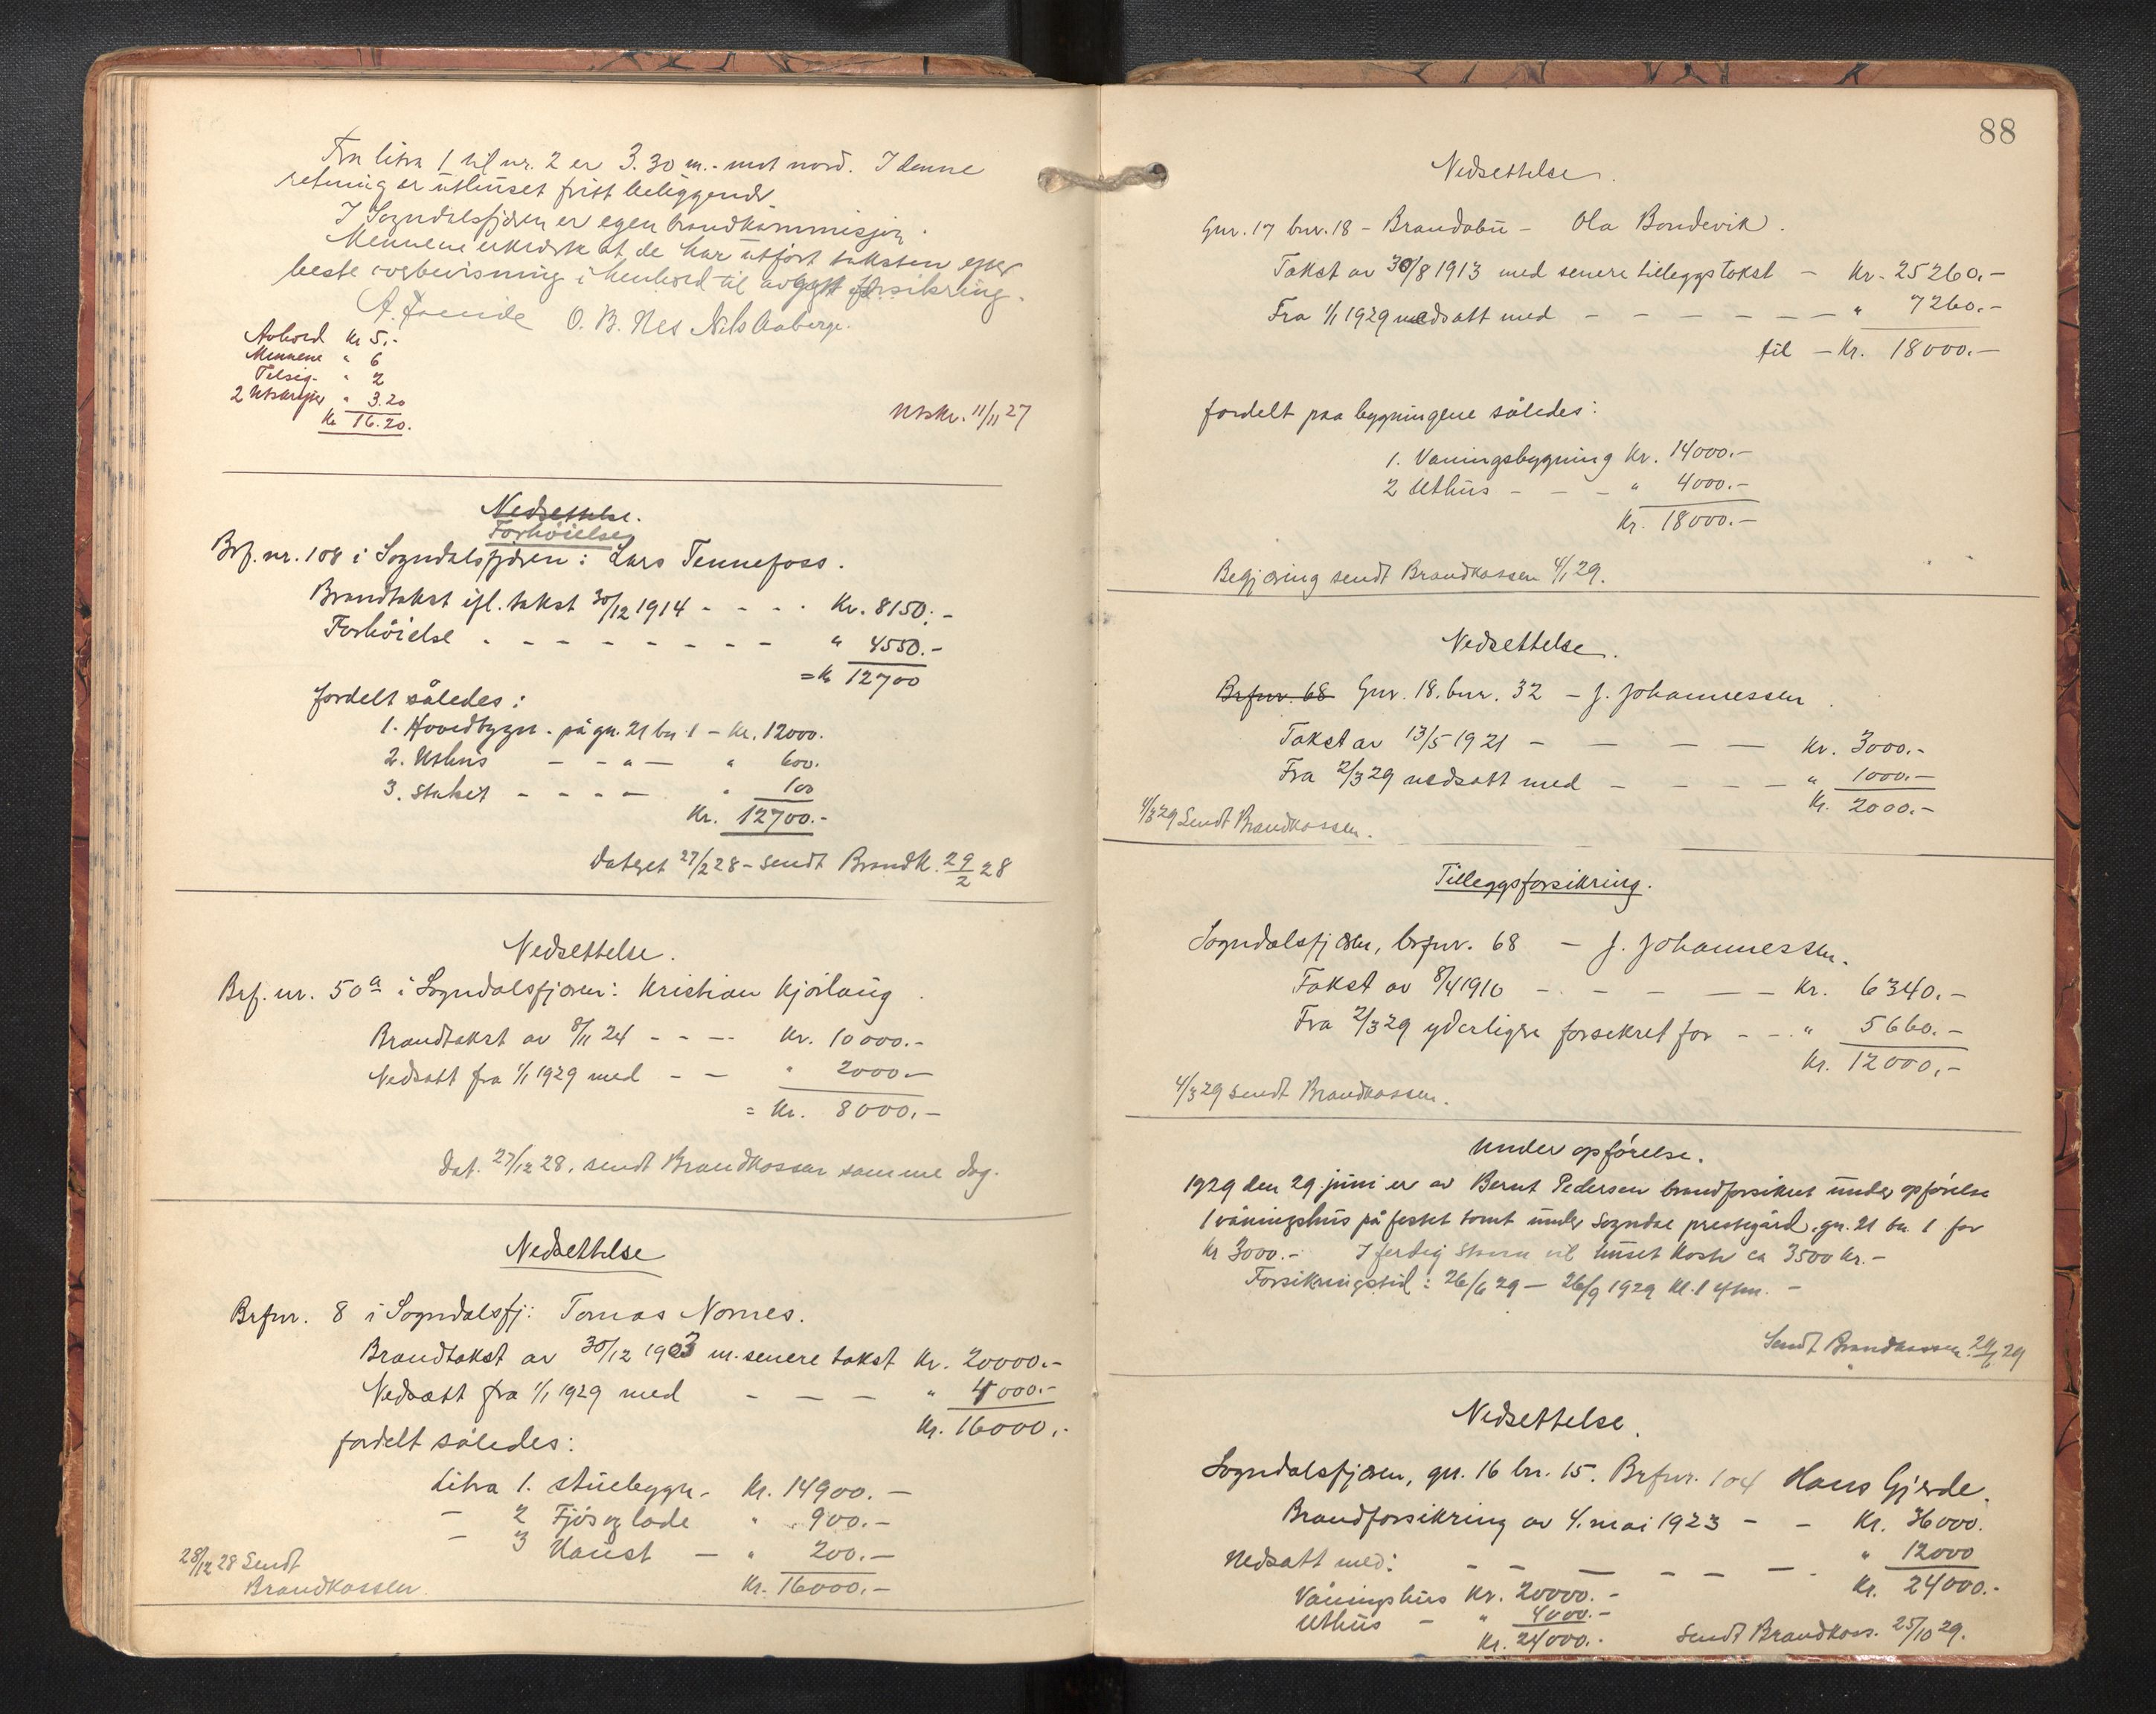 Fra litra 1 til nr. 2 er 3.30 m. mot nord. I denne
retning er uthuset fritt beliggende
I Sogndalsfjæren er egen brandkommisjon.
Mennene erklærte at de har utført taksten efter
beste overbevisning i henhold til avgitt forsikring.
O. B. Nes Nils Aaberge.
Avhord Kr 5.-
Mennene " 6
Tilsig. " 2
2 Utskrifter " 3.20
Kr 16.20.
Utskr. 11/11 27
Nedsettelse.
Forhöielse
Brf. nr. 108 i Sogndalsfjæren: Lars Tennefoss.
Brandtakst ifl. takst 30/12 1914 - - - - Kr. 8150.-
Forhöielse - - - - - - - - " 4550.-
= Kr 12700
fordelt således:
1. Hovedbygn. på gn. 21 bn. 1 - Kr. 12000.
2. Uthus - - " - " 600.
3. Staket - - - - " 100
Kr. 12700.-
Datert 27/2 28 - sendt Brandk. 29/2 28
Nedsettelse.
Brf. nr. 50a i Sogndalsfjæren: Kristian Kjørlaug
Brandtakst av 8/11 24 - - - Kr. 10000.-
Nedsatt fra 1/1 1929 med - - " 2000.-
= Kr. 8000.-
Dat. 27/12 28, sendt Brandkassen samme dag.
Nedsettelse
Brfnr. 8 i Sogndalsfj: Tomas Nornes.
Brandtakst av 30/12 1903 m. senere takst Kr. 20000.-
Nedsatt fra 1/1 1929 med - - - " 4000.-
Kr. 16000.-
fordelt således:
Litra 1. Stuebygn. Kr. 14900.-
- 2 Fjös og lade " 900.-
- 3 Naust - " 200.-
Kr. 16000.-
28/12 28 Sendt
Brandkassen.
88
Nedsettelse.
Gnr. 17 bnr. 18 - Brandabu - Ola Bondevik.
Takst av 30/8 1913 med senere tilleggstakst - Kr. 25260.-
Fra 1/1 1929 nedsatt med - - - - - - " 7260.-
til - Kr. 18000.-
fordelt paa bygningene således:
1. Vaningsbygning Kr. 14000.-
2 Uthus - - - " 4000.-
Kr. 18000.-
Begjæring sendt Brandkassen 4/1 29.
Nedsettelse.
Brfnr. 68 Gnr. 18. bnr. 32 - J. Johannessen
Takst av 13/5 1921 - - - - Kr. 3000.-
Fra 2/3 29 nedsatt med - - - - " 1000.-
Kr. 2000.-
4/3 29 Sendt Brandkassen.
Tilleggsforsikring.
Sogndalsfjæren, brfnr. 68 - J. Johannessen.
Takst av 8/4 1910 - - - - - - Kr. 6340.-
Fra 2/3 29 yderligere forsekret for - - " 5660.-
Kr. 12000.-
4/3 29 sendt Brandkassen.
Under opförelse.
1929 den 29 juni er av Bernt Pedersen brandforsikret under opförelse
1 våningshus på festet tomt under Sogndal prestegård, gn. 21 bn. 1 for
Kr 3000.- I ferdig stand vil huset koste ca 3500 kr.-
Forsikringstid: 26/6 29 - 26/9 1929 kl. 1 -
Sendt Brandkassen 29/6 29
Nedsettelse.
Sogndalsfjæren, gn. 16 bn. 15. Brfnr. 104 Hans Gjerde.
Brandforsikring av 4. mai 1923 - - Kr. 36000.
Nedsatt med: - - - - - - - " 12000
Kr. 24000.-
Våningshus Kr. 20000.-
Uthus - " 4000.-
Kr. 24000.- Sendt Brandkass. 25/10 29.